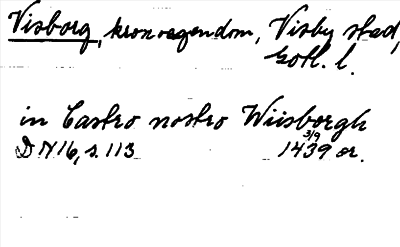 Visborg, kronoegendom, Visby stad,
Gotl. l.
in Castro nostro Wiisborgh
DN 16, s. 113 3/9 1439 or.